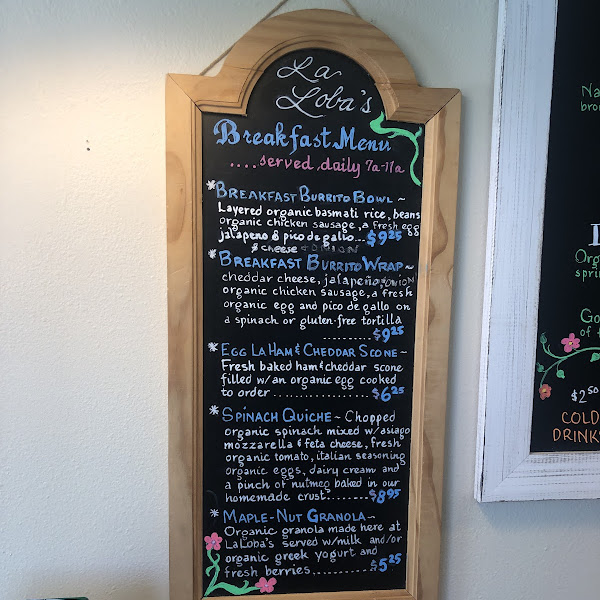 La
Loba's
Breakfast Menu
....served daily 7a-11a
*BREAKFAST BURRITO BOWL~
Layered organic basmati rice, beans
organic chicken sausage, a fresh egg
jalapeno & pico de gallo...$9.25
& cheese & ONION
*BREAKFAST BURRITO WRAP~
cheddar cheese, jalapeño & ONION
organic chicken sausage, a fresh
organic egg and pico de gallo on
a spinach or gluten-free tortilla
.........$9.25
*EGG LA HAM & CHEDDAR SCONE~
Fresh baked ham & cheddar scone
filled w/an organic egg cooked
to order..................$6.25
*SPINACH QUICHE~ Chopped
organic spinach mixed w/asiago
mozzarella & feta cheese, fresh
organic tomato, italian seasoning
organic eggs, dairy cream and
a pinch of nutmeg baked in our
homemade crust........$8.95
*MAPLE-NUT GRANOLA~
Organic granola made here at
LaLoba's served w/milk and/or
organic greek yogurt and
fresh berries...........$5.25
Na
bro
Org
sprin
Go
of t
$2.50
COLD
DRINK